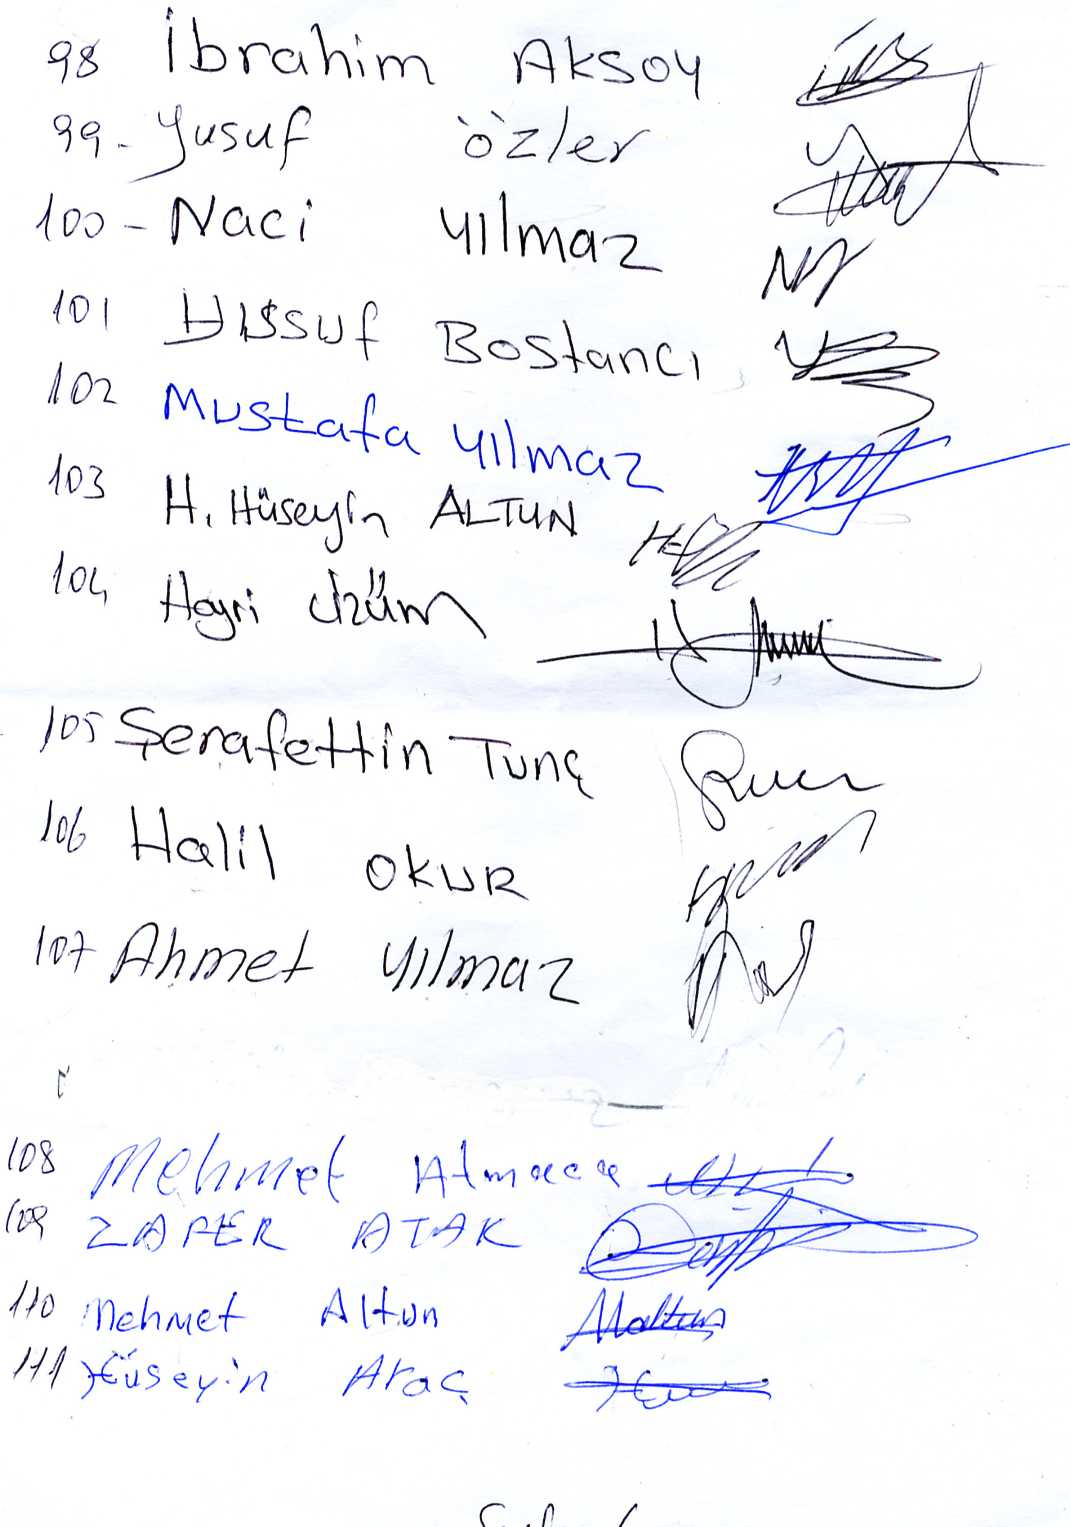 98 İbrahim Aksoy
99- Yusuf Özler
100- Naci Yılmaz
101 Yussuf Bostancı
102 Mustafa Yılmaz
103 H. Hüseyin ALTUN
104 Hayri Üzüm
105 Şerafettin Tunç
106 Halil OKUR
107 Ahmet Yılmaz
108 Mehmet Atmaca
109 ZAFER ATAK
110 Mehmet Altun
111 Hüseyin Araç